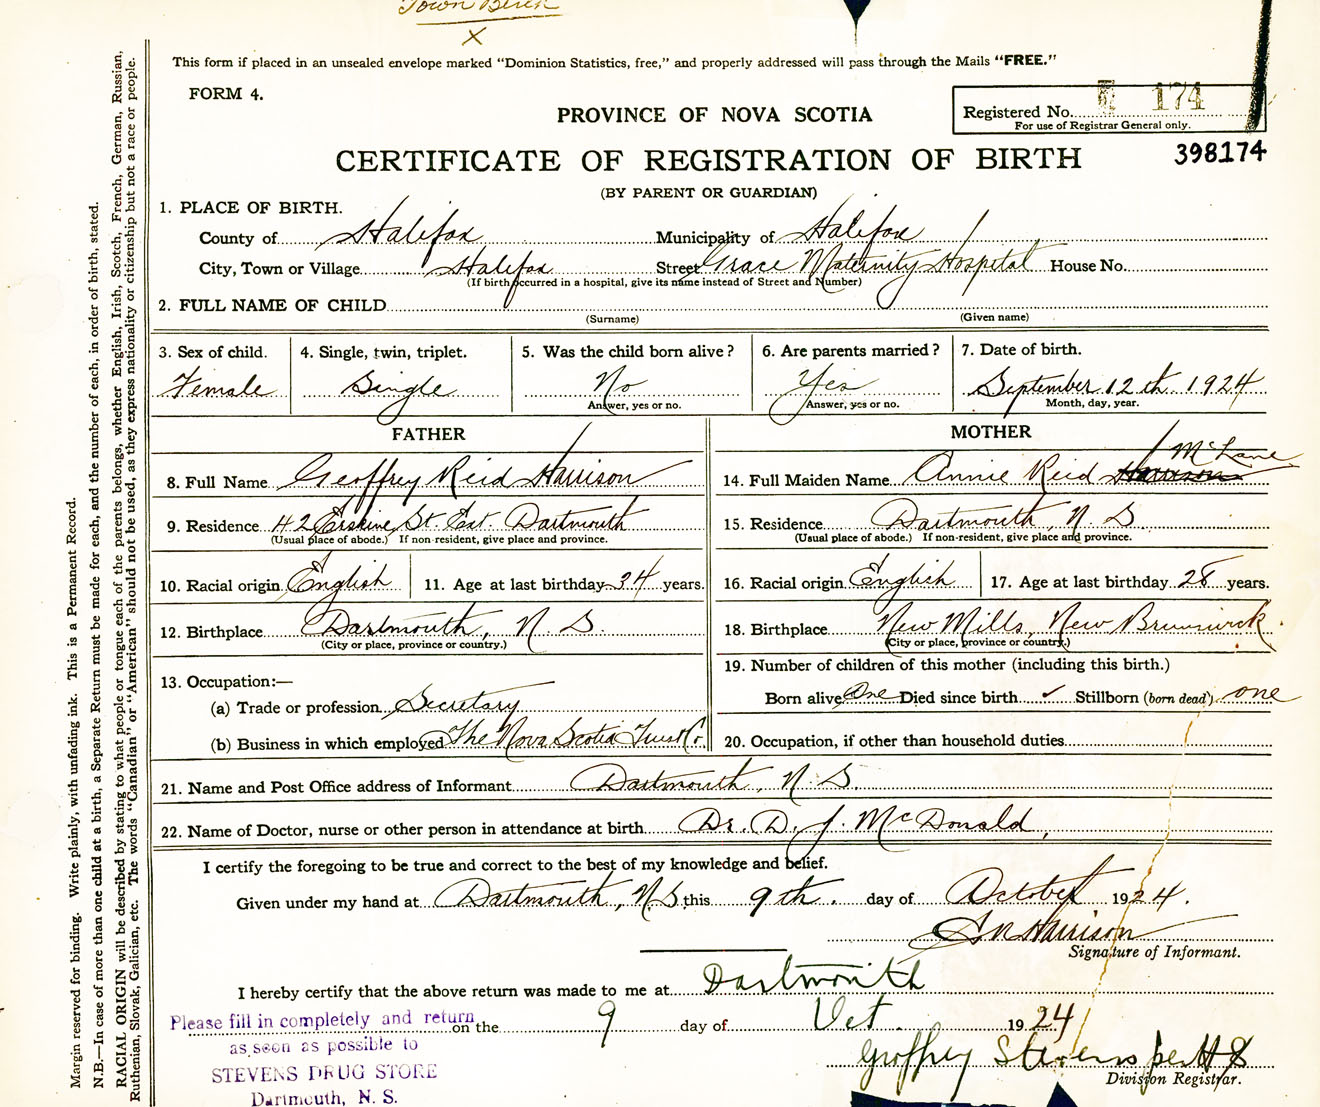 Town Birth
X
This form if placed in an unsealed envelope marked "Dominion Statistics, free," and properly addressed will pass through the Mails "FREE."
FORM 4.
PROVINCE OF NOVA SCOTIA
Registered No. 174
For use of Registrar General only.
CERTIFICATE OF REGISTRATION OF BIRTH
398174
(BY PARENT OR GUARDIAN)
1. PLACE OF BIRTH.
County of Halifax Municipality of Halifax
City, Town or Village Halifax Street Grace Maternity Hospital House No.
(If birth occurred in a hospital, give its name instead of Street and Number)
2. FULL NAME OF CHILD
(Surname) (Given name)
3. Sex of child. 4. Single, twin, triplet. 5. Was the child born alive? 6. Are parents married? 7. Date of birth.
Female Single No Yes September 12th. 1924
Answer, yes or no. Answer, yes or no. Month, day, year.
FATHER MOTHER
8. Full Name Geoffrey Reid Harrison
14. Full Maiden Name Annie Reid McLane
9. Residence 42 Erskine St. East. Dartmouth
(Usual place of abode.) If non-resident, give place and province.
15. Residence Dartmouth, N. S.
(Usual place of abode.) If non-resident, give place and province.
10. Racial origin English 11. Age at last birthday 34 years.
16. Racial origin English 17. Age at last birthday 28 years.
12. Birthplace Dartmouth, N. S.
(City or place, province or country.)
18. Birthplace New Mills, New Brunswick.
(City or place, province or country.)
13. Occupation:—
(a) Trade or profession Secretary
(b) Business in which employed The Nova Scotia Trust Co.
19. Number of children of this mother (including this birth.)
Born alive One Died since birth ✓ Stillborn (born dead) one
20. Occupation, if other than household duties
21. Name and Post Office address of Informant Dartmouth, N. S.
22. Name of Doctor, nurse or other person in attendance at birth Dr. D. J. McDonald,
I certify the foregoing to be true and correct to the best of my knowledge and belief.
Given under my hand at Dartmouth, N.S. this 9th. day of October 1924.
Harrison
Signature of Informant.
I hereby certify that the above return was made to me at Dartmouth
on the 9 day of Oct. 1924
Geoffrey Stevens per H S
Division Registrar.
Please fill in completely and return
as soon as possible to
STEVENS DRUG STORE
Dartmouth, N. S.
Margin reserved for binding. Write plainly, with unfading ink. This is a Permanent Record.
N.B.—In case of more than one child at a birth, a Separate Return must be made for each, and the number of each, in order of birth, stated.
RACIAL ORIGIN will be described by stating to what people or tongue each of the parents belongs, whether English, Irish, Scotch, French, German, Russian,
Ruthenian, Slovak, Galician, etc. The words "Canadian" or "American" should not be used, as they express nationality or citizenship but not a race or people.